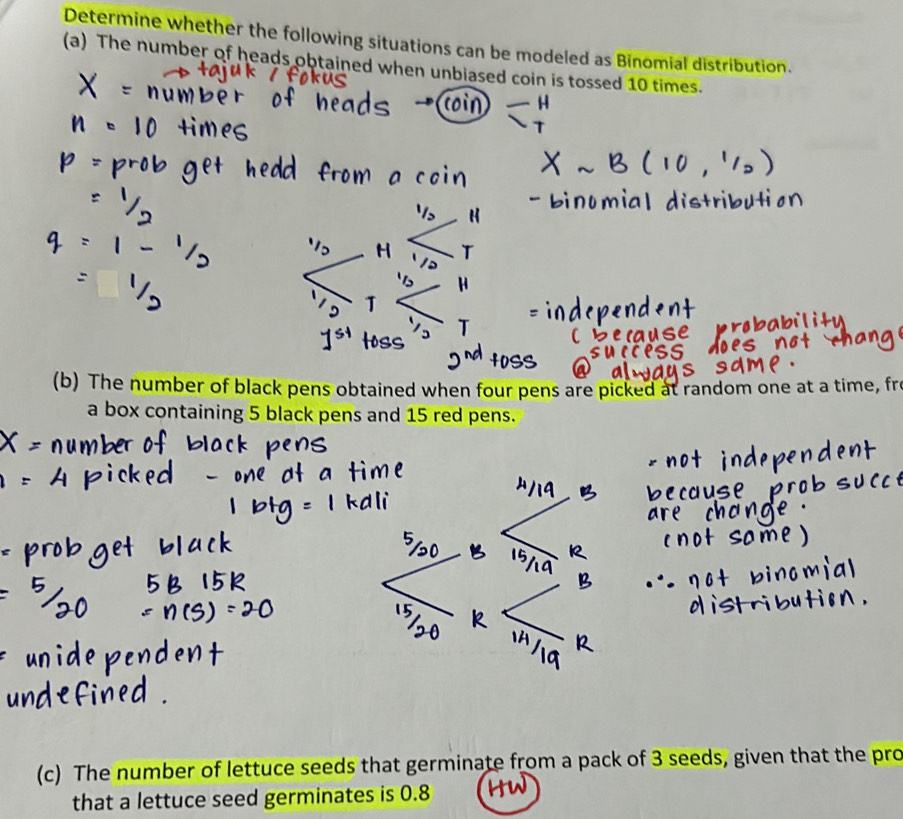 Determine whether the following situations can be modeled as Binomial distribution.
(a) The number of heads obtained when unbiased coin is tossed 10 times.
→ tajuk / fokus
X = number of heads → coin
H
T
n = 10 times
p = prob get hedd from a coin
= 1/2
q = 1 - 1/2
= 1/2
X ~ B (10, 1/2)
- binomial distribution
1/2 H
1/2 T
1st toss
1/2 H
1/2 T
1/2 H
1/2 T
2nd toss
= independent
( because probability
success does not change
@ always same.
(b) The number of black pens obtained when four pens are picked at random one at a time,
a box containing 5 black pens and 15 red pens.
X = number of black pens
= 4 picked - one at a time
1 btg = 1 kali
= prob get black
= 5/20
5B 15R
= n(S) = 20
= unidependent
undefined.
5/20 B
15/20 R
4/19 B
15/19 R
B
14/19 R
- not independent
because prob
are change.
(not same)
∴ not binomial
distribution.
(c) The number of lettuce seeds that germinate from a pack of 3 seeds, given that the
that a lettuce seed germinates is 0.8
HW